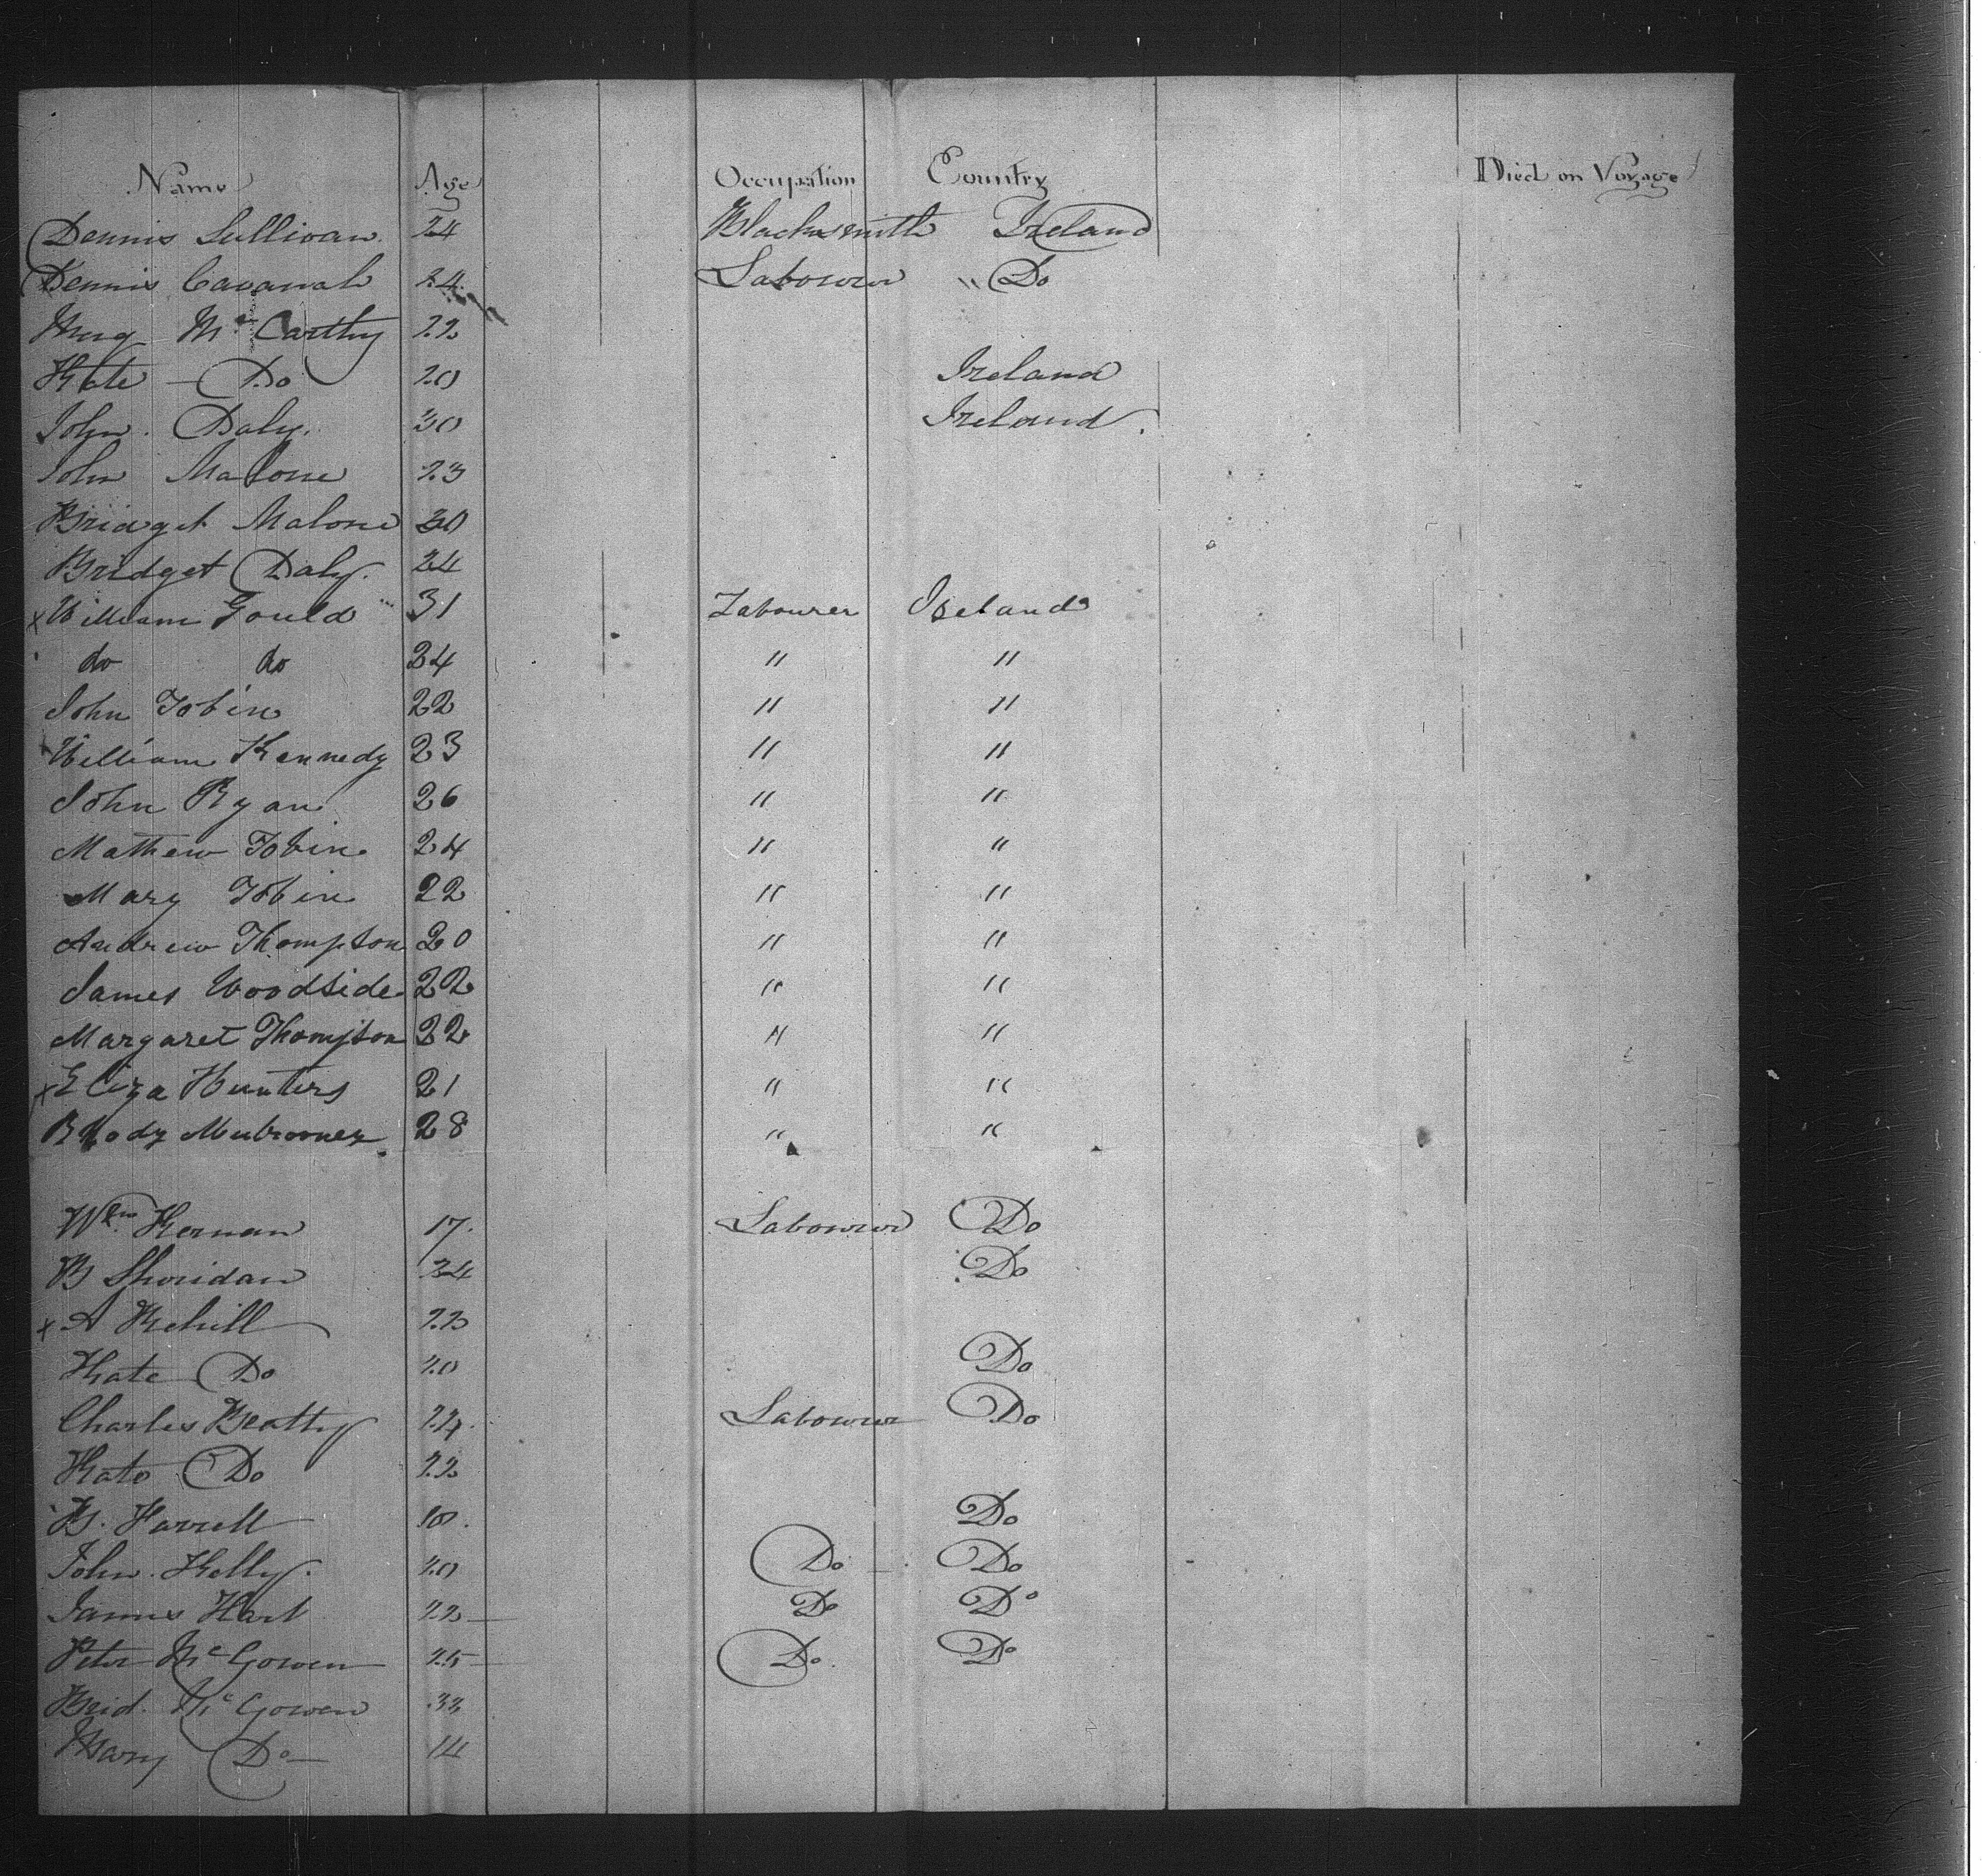 Name Age Occupation Country Died on Voyage
Dennis Sullivan 24 Blacksmith Ireland
Dennis Cavanah 24 Labourer " Do
Mc Carthy 22
Kate - Do 20 Ireland
John Daly 30 Ireland
John Malone 23
Bridget Malone 30
Bridget Daly 24
x William Gould 31 Labourer Ireland
do do 24 " "
John Tobin 22 " "
William Kennedy 23 " "
John Ryan 26 " "
Mathew Tobin 24 " "
Mary Tobin 22 " "
Andrew Thompson 20 " "
James Woodside 22 " "
Margaret Thompson 22 " "
x Eliza Hunters 21 " "
28 " "
Wm Kernan 17 Labourer Do
B Sheridan 24 Do
x A Kehill 22
Kate Do 20 Do
Charles Beatty 24 Labourer Do
Kate Do 22
B. Do
John Kelly 20 Do Do
James Hart 22 Do Do
Peter McGowen 25 Do Do
Brid. McGowen
Mary Do 14